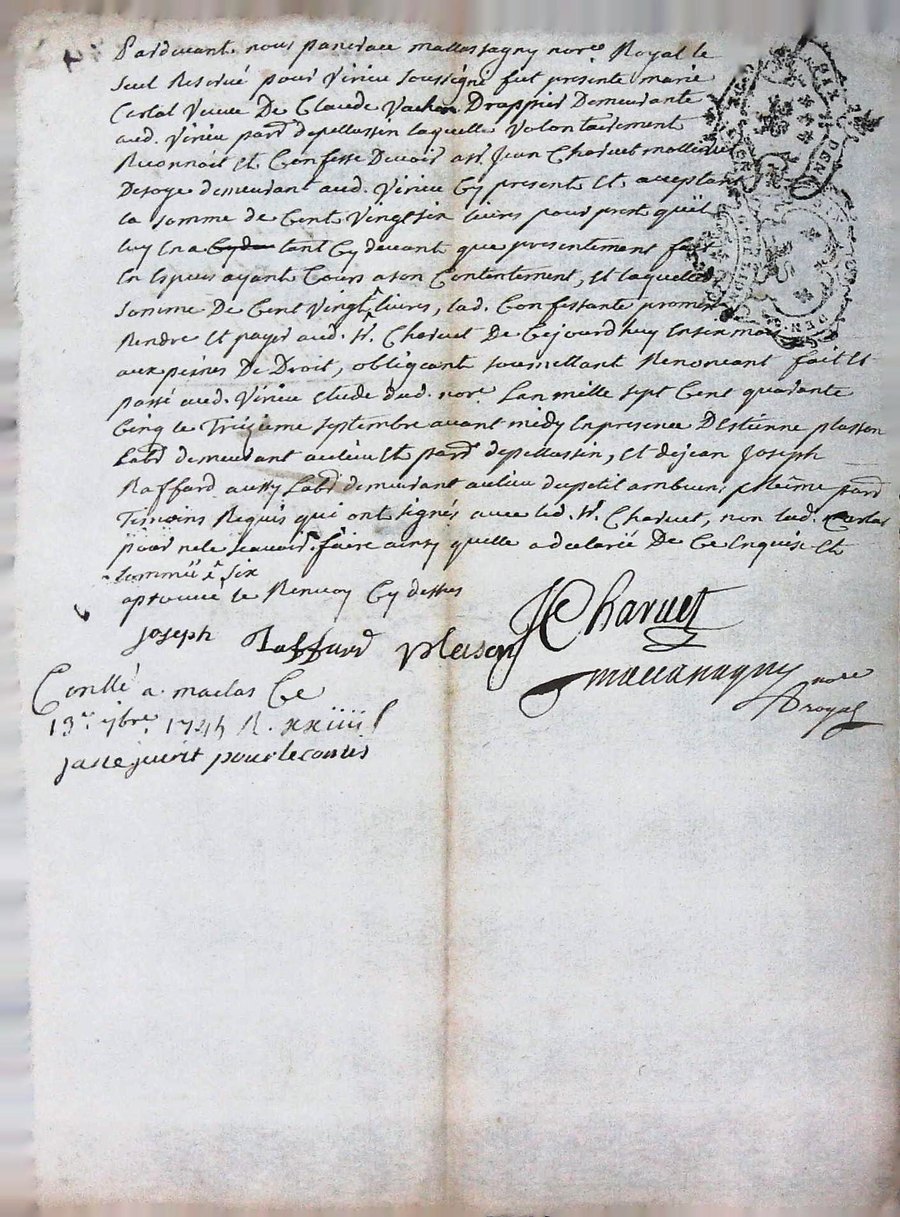 Pardevant nous pancrace mallassagny nore Royal le
seul Reservé pour Virieu soussigné fut presente marie
Costal Veuve De Claude Vachon Drappier Demeurante
aud. Virieu parr depellussin laquelle volontairement
Reconnoit Et Confesse Devoir a sr. Jean Charvet mollinier
Desoye demeurant aud. Virieu Cy present Et acceptant
la somme de Cent Vingtsix livres pour prest quil
luy En a tant Cy devant que presentement fait
En Espices ayant Cours a son Contentement, Et laquelle
somme De Cent Vingt ^ livres, lad. Confessante promet
Rendre Et payer aud. sr. Charvet De Cejourdhuy En six mois
aux peines De Droit, obligeant soumettant Renonceant fait Et
passé aud. Virieu Etude dud. nore. Lan mille sept Cent quarante
Cinq le Trizieme septembre avant midy En presence DEstienne plasson
Labr demeurant au lieu Et parr depellussin, Et dejean Joseph
Raffard aussy Labr demeurant aulieu dupetit ambuent mesme parr
Temoins Requis qui ont signés avec led. sr. Charvet, non lad. Costal
pour nele scavoir faire ainsy quelle a declarée De Ce Enquise Et
sommée ^ six
aprouvé le Renvoy Cy dessus
joseph Raffard plason JCharvet
mallassagny nore
royal
Conllé a maclas Ce
13e. 7bre. 1745 R. xxiiii s